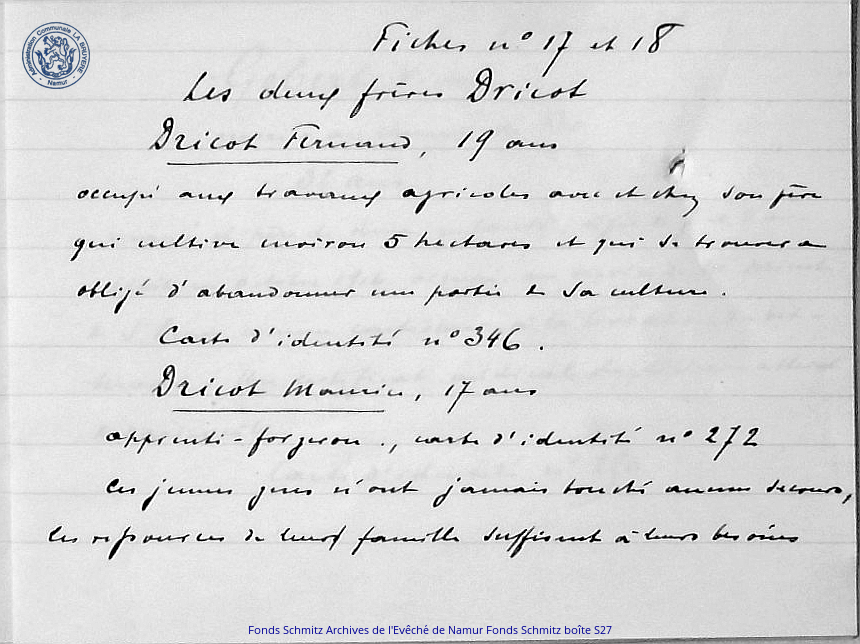 Administration Communale LA BRUYERE
- Namur -
Fiches n° 17 et 18
Les deux frères Dricot
Dricot Fernand, 19 ans
occupé aux travaux agricoles avec et chez son père
qui cultive environ 5 hectares et qui se trouvera
obligé d'abandonner une partie de sa culture.
Carte d'identité n° 346.
Dricot Maurice, 17 ans
apprenti-forgeron., carte d'identité n° 272
Ces jeunes gens n'ont jamais touché aucun secours,
les ressources de leurs famille suffisent à leurs besoins
Fonds Schmitz Archives de l'Evêché de Namur Fonds Schmitz boîte S27